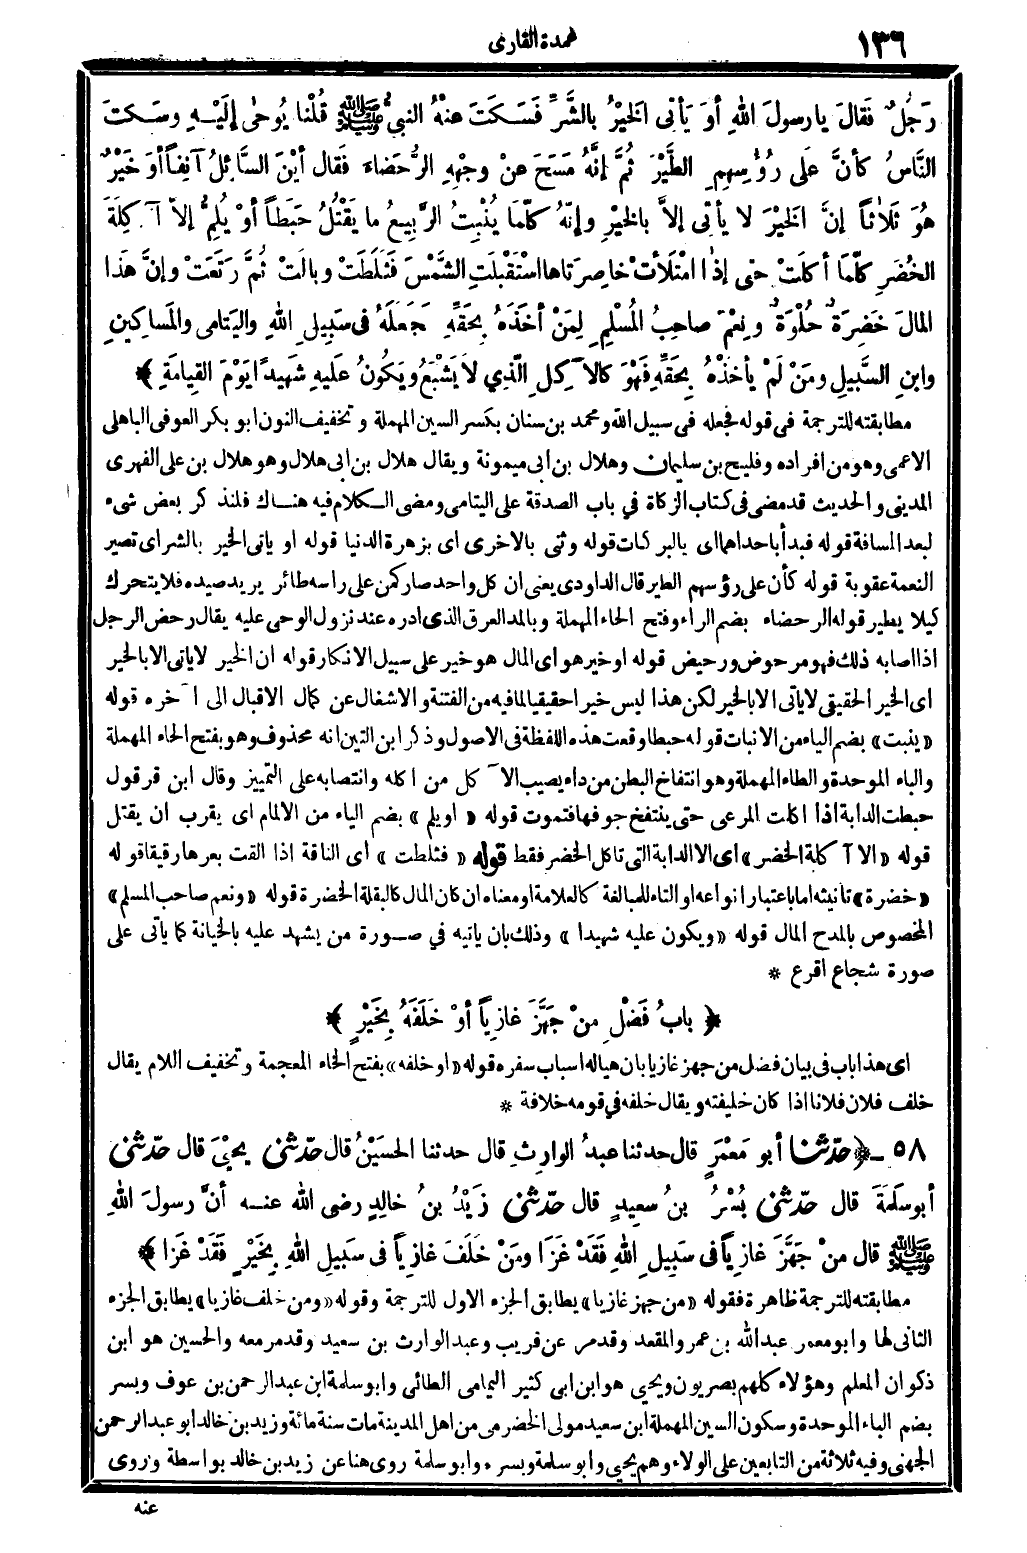 ١٣٦
عمدة القارى
رَجُلٌ فَقَالَ يا رسولَ اللهِ أوَ يَأتى الخيْرُ بالشَّرِّ فَسَكَتَ عنْهُ النبيُّ ﷺ قُلْنا يُوحٰى إلَيْهِ وسَكتَ
النَّاسُ كأنَّ علَى رُؤسِهِمِ الطَّيْرَ ثُمَّ إنَّهُ مَسَحَ عنْ وجْهِهِ الرُّحَضاءَ فَقال أيْنَ السَّائِلُ آنِفاً أوَ خيْرٌ
هُوَ ثَلاثاً إنَّ الخيْرَ لا يأتى إلاَّ بالخيْرِ وإنَّهُ كلَّما يُنْبِتُ الرَّبِيعُ ما يَقْتُلُ حَبَطاً أوْ يُلِمُّ إلاّ آكِلَةَ
الخُضَرِ كلَّما أكلَتْ حتى إذَا امْتَلأتْ خاصِرَتاها اسْتَقْبلَتِ الشَّمْسَ فَثَلَطَتْ وبالَتْ ثُمَّ رَتَعَتْ وإنَّ هَذا
المالَ خَضِرَةٌ حُلْوَةٌ ونِعْمَ صاحِبُ المُسْلِمِ لِمَنْ أخَذَهُ بِحَقِّهِ فَجَعَلَهُ فى سَبِيلِ اللهِ واليَتامى والمَساكِينِ
وابنِ السَّبِيلِ ومَنْ لَمْ يأخذْهُ بِحَقِّهِ فَهْوَ كالآكِلِ الَّذِي لاَ يَشْبَعُ ويَكُونُ علَيهِ شَهِيدًا يَوْمَ القِيامَةِ ﴾
مطابقته للترجمة فى قوله فجعله فى سبيل الله ومحمد بن سنان بكسر السين المهملة وتخفيف النون ابو بكر العوفى الباهلى
الاعمى وهو من افراده وفليح بن سليمان وهلال بن أبى ميمونة ويقال هلال بن ابى هلال وهو هلال بن على الفهرى
المدينى والحديث قد مضى فى كتاب الزكاة في باب الصدقة على اليتامى ومضى الكلام فيه هناك فلنذكر بعض شىء
لبعد المسافة قوله فبدأ باحداهما اى بالبركات قوله وثنى بالاخرى اى بزهرة الدنيا قوله او يأتى الخير بالشر اى تصير
النعمة عقوبة قوله كأن على رؤسهم الطير قال الداودى يعنى ان كل واحد صار كمن على راسه طائر يريد صيده فلا يتحرك
كيلا يطير قوله الرحضاء بضم الراء وفتح الحاء المهملة وبالمد العرق الذى ادره عند نزول الوحى عليه يقال رحض الرجل
اذا اصابه ذلك فهو مرحوض ورحيض قوله اوخير هو اى المال هو خير على سبيل الانكار قوله ان الخير لا ياتى الا بالخير
اى الخير الحقيقى لا ياتى الا بالخير لكن هذا ليس خيرا حقيقيا لما فيه من الفتنة والاشغال عن كمال الاقبال الى الآخره قوله
«ينبت» بضم الياء من الانبات قوله حبطا وقعت هذه اللفظة فى الاصول وذكر ابن التين انه محذوف وهو بفتح الحاء المهملة
والباء الموحدة والطاء المهملة وهو انتفاخ البطن من داء يصيب الآكل من اكله وانتصابه على التمييز وقال ابن قرقول
حبطت الدابة اذا اكلت المرعى حتى ينتفخ جوفها فتموت قوله «او يلم» بضم الياء من الالمام اى يقرب ان يقتل
قوله «الا آكلة الخضر» اى الا الدابة التى تاكل الخضر فقط قوله «فثلطت» اى الناقة اذا القت بعرها رقيقا قوله
«خضرة» تانيثه اما باعتبار انواعه او التاء للمبالغة كالعلامة او معناه ان كان المال كالبقلة الخضرة قوله «ونعم صاحب المسلم»
المخصوص بالمدح المال قوله «ويكون عليه شهيدا» وذلك بان ياتيه في صورة من يشهد عليه بالخيانة كما يأتى على
صورة شجاع اقرع *
﴿ بابُ فَضْلِ مِنْ جَهَّزَ غازِياً أوْ خَلَفَهُ بِخَيْرٍ ﴾
اى هذا باب فى بيان فضل من جهز غازيا بان هيا له اسباب سفره قوله «او خلفه» بفتح الخاء المعجمة وتخفيف اللام يقال
خلف فلان فلانا اذا كان خليفته ويقال خلفه فى قومه خلافة *
٥٨ ـ ﴿ حدّثنا أبو مَعْمَرٍ قال حدثنا عبدُ الوارِثِ قال حدثنا الحسَيْنُ قال حدّثنى يحيْىَ قال حدّثنى
أبو سلَمَةَ قال حدّثنى بُسْرُ بنُ سعِيدٍ قال حدّثنى زَيْدُ بنُ خالِدٍ رضى الله عنه أنَّ رسولَ اللهِ
ﷺ قال منْ جَهَّزَ غازِياً فى سَبِيلِ اللهِ فَقَدْ غَزَا ومَنْ خَلَفَ غازِياً فى سَبِيلِ اللهِ بِخَيْرٍ فَقَدْ غَزَا ﴾
مطابقته للترجمة ظاهرة فقوله «من جهز غازيا» يطابق الجزء الاول للترجمة وقوله «ومن خلف غازيا» يطابق الجزء
الثانى لها وابو معمر عبدالله بن عمر والمقعد وقد مر عن قريب وعبد الوارث بن سعيد وقد مر معه والحسين هو ابن
ذكوان المعلم وهؤلاء كلهم بصريون ويحيى هو ابن ابى كثير اليمامى الطائى وابو سلمة ابن عبد الرحمن بن عوف وبسر
بضم الباء الموحدة وسكون السين المهملة ابن سعيد مولى الحضرمى من اهل المدينة مات سنة مائة وزيد بن خالد ابو عبد الرحمن
الجهنى وفيه ثلاثة من التابعين على الولاء وهم يحيى وابو سلمة وبسر وابو سلمة روى هنا عن زيد بن خالد بواسطة وروى
عنه